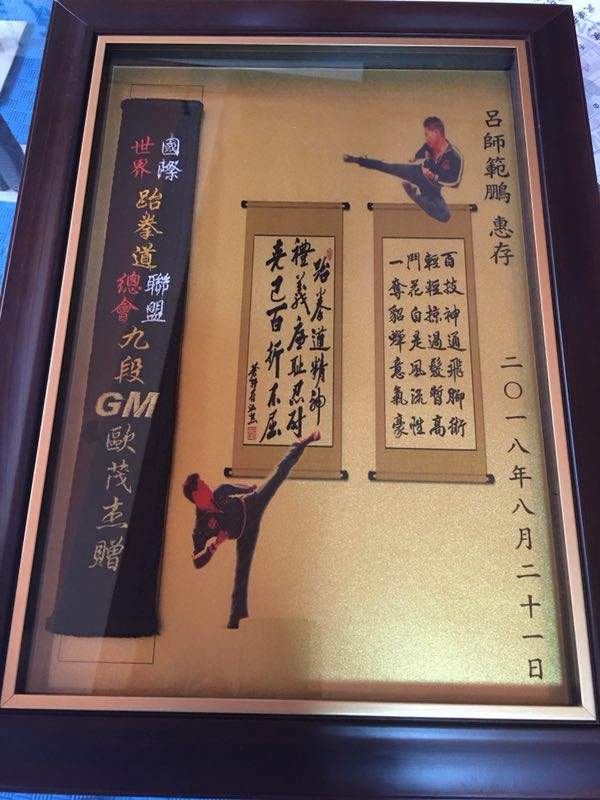 呂師範鵬 惠存
二〇一八年八月二十一日
百技神通飛聊術
輕輕掠過髮暫高
鬥花自是風流性
一奪貂蟬意氣豪
跆拳道精神
禮義廉耻忍耐
克己百行不屈
國際
世界
跆拳道
聯盟
總會
九段
GM
歐茂杰贈